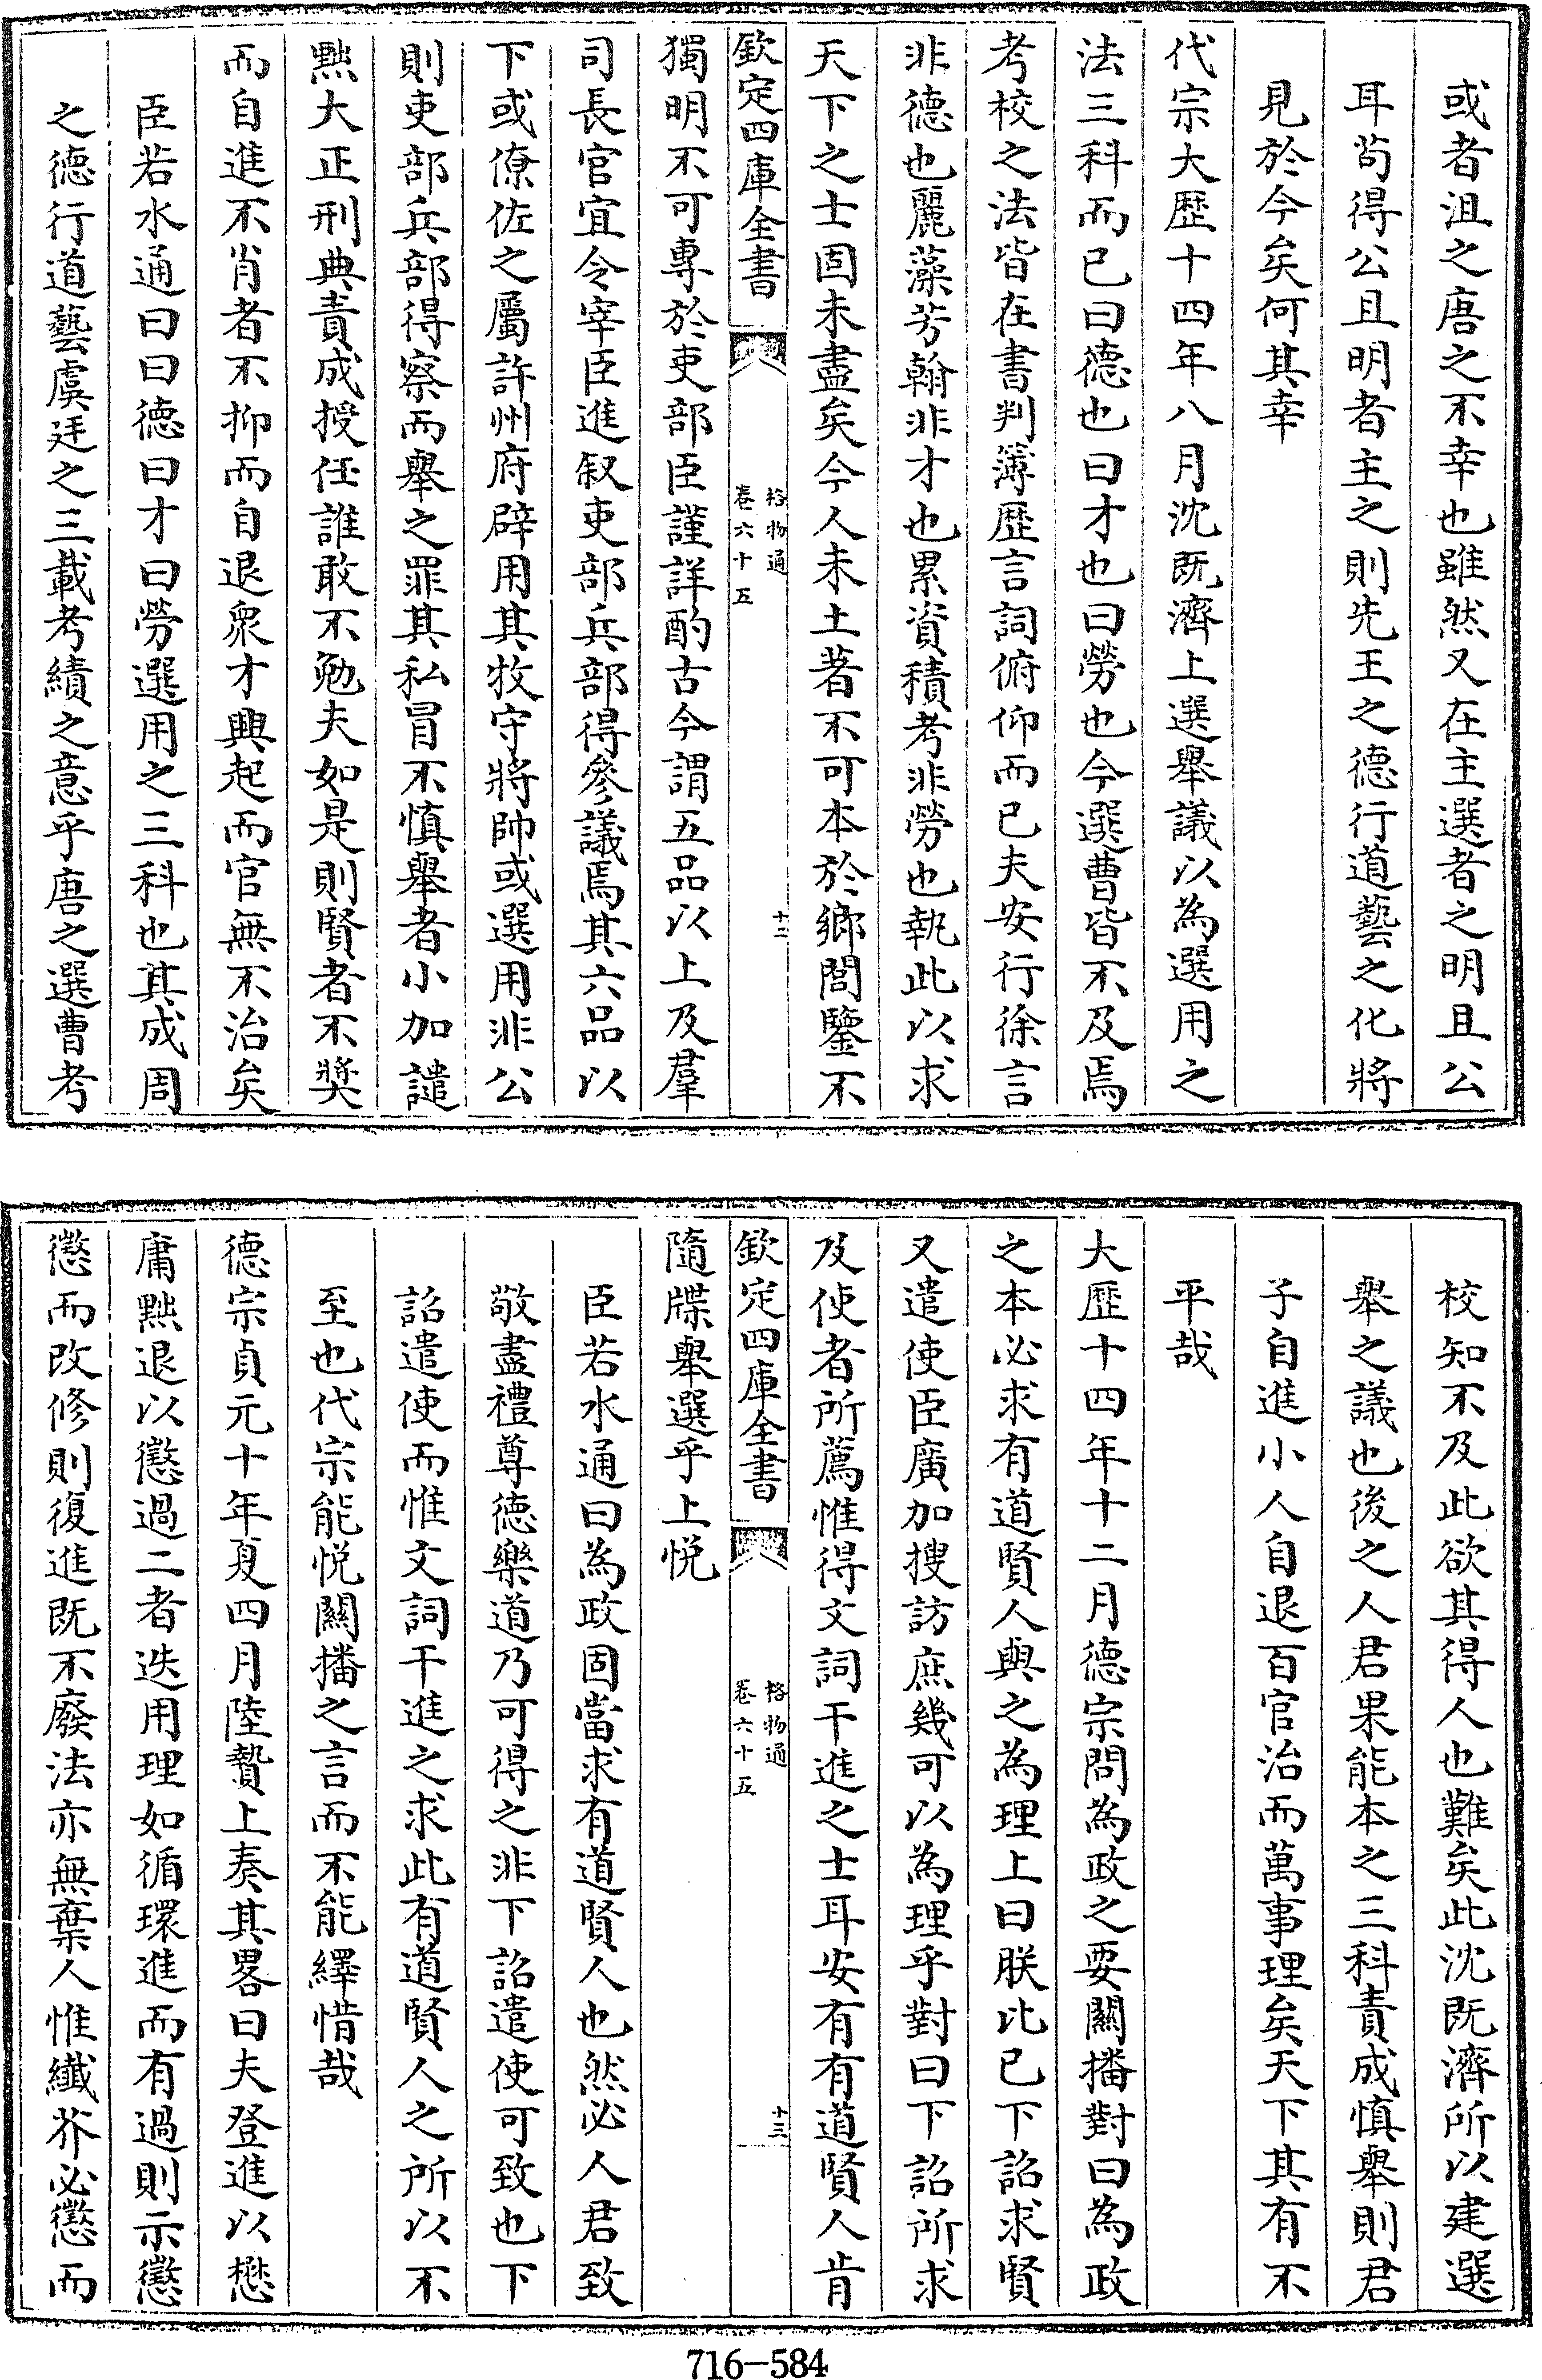 或者沮之唐之不幸也雖然又在主選者之明且公
耳茍得公且明者主之則先王之德行道藝之化將
見於今矣何其幸
代宗大歷十四年八月沈既濟上選舉議以為選用之
法三科而已曰德也曰才也曰勞也今選曹皆不及焉
考校之法皆在書判簿歷言詞俯仰而已夫安行徐言
非德也麗藻芳翰非才也累資積考非勞也執此以求
天下之士固未盡矣今人未土著不可本於鄉閭鑒不
欽定四庫全書
格物通
卷六十五
十二
獨明不可專於吏部臣謹詳酌古今謂五品以上及羣
司長官宜令宰臣進叙吏部兵部得參議焉其六品以
下或僚佐之屬許州府辟用其牧守將帥或選用非公
則吏部兵部得察而舉之罪其私冒不慎舉者小加譴
黜大正刑典責成授任誰敢不勉夫如是則賢者不奬
而自進不肖者不抑而自退衆才興起而官無不治矣
臣若水通曰曰德曰才曰勞選用之三科也其成周
之德行道藝虞廷之三載考績之意乎唐之選曹考
校知不及此欲其得人也難矣此沈既濟所以建選
舉之議也後之人君果能本之三科責成慎舉則君
子自進小人自退百官治而萬事理矣天下其有不
平哉
大歷十四年十二月德宗問為政之要關播對曰為政
之本必求有道賢人與之為理上曰朕比已下詔求賢
又遣使臣廣加搜訪庶幾可以為理乎對曰下詔所求
及使者所薦惟得文詞干進之士耳安有有道賢人肯
欽定四庫全書
格物通
卷六十五
十三
隨牒舉選乎上悦
臣若水通曰為政固當求有道賢人也然必人君致
敬盡禮尊德樂道乃可得之非下詔遣使可致也下
詔遣使而惟文詞干進之求此有道賢人之所以不
至也代宗能悦關播之言而不能繹惜哉
德宗貞元十年夏四月陸贄上奏其畧曰夫登進以懋
庸黜退以懲過二者迭用理如循環進而有過則示懲
懲而改修則復進既不廢法亦無棄人惟纖芥必懲而
716-584